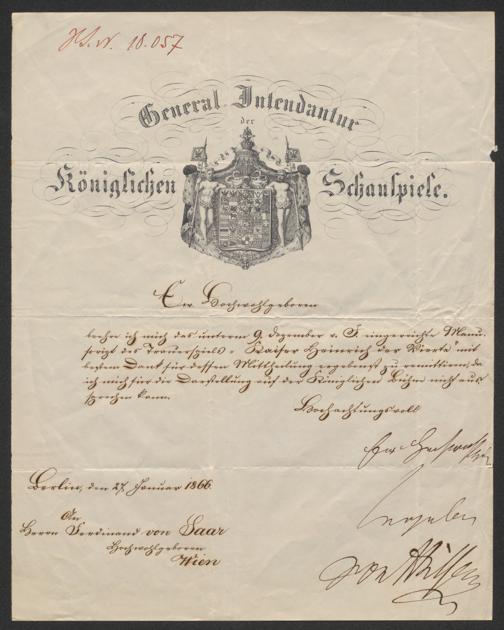 H.S. N. 18.057
General Intendantur
der
Königlichen Schauspiele.
Ew Hochwohlgeboren
beehre ich mich das unterm 9. Dezember v. J. eingereichte Manu-
script des Trauerspiels „Kaiser Heinrich der Vierte" mit
bestem Dank für dessen Mittheilung ergebenst zu remittiren, da
ich mich für die Darstellung auf der Königlichen Bühne nicht aus
sprechen kann.
Hochachtungsvoll
Ew
Berlin, den 27. Januar 1866.
ergebener
An
Herrn Ferdinand von Saar
Hochwohlgeboren
Wien
von Hülsen